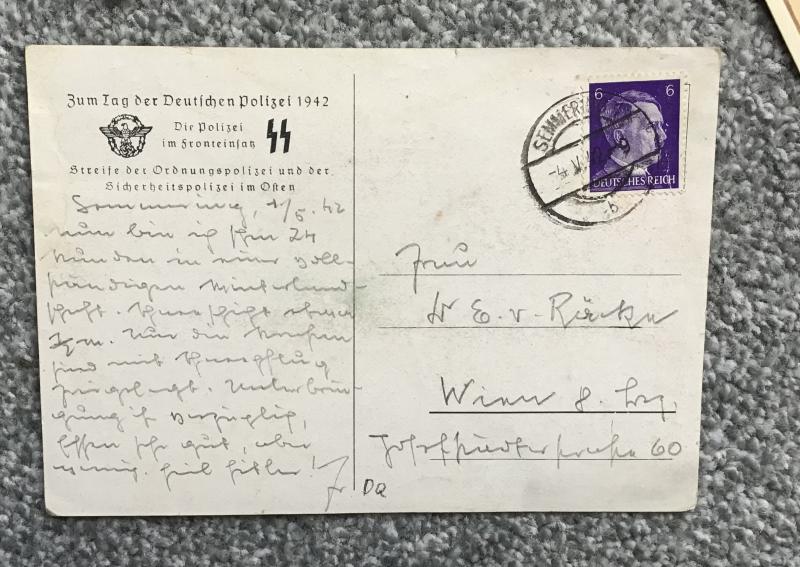 Zum Tag der Deutschen Polizei 1942
Die Polizei
im Fronteinsatz
Streife der Ordnungspolizei und der
Sicherheitspolizei im Osten
Semmering, 1/5. 42
nun bin ich schon 24
Stunden in einer voll-
ständigen Winterland-
schaft. Schnee
Nur die Straßen
sind mit Schneepflug
freigelegt. Unterbrin-
gung ist vorzüglich,
Essen sehr gut, aber
wenig. Heil Hitler!
6 6
DEUTSCHES REICH
SEMMERING
-4.V.42-9
b
Frau
Dr E. v.
Wien 8. Bez.
Josefstädterstraße 60
Da